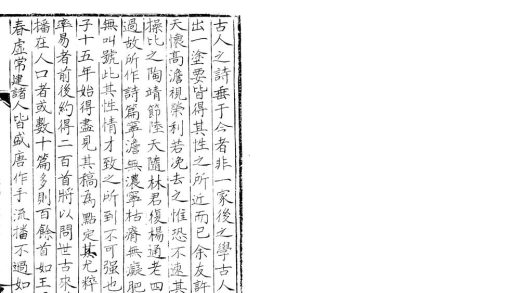 古人之詩垂于今者非一家後之學古人
出一塗要皆得其性之所近而已余友許
天懷高澹視榮利若浼去之惟恐不速其
操比之陶靖節陸天隨林君復楊通老四
過故所作詩篇寧澹無濃寧枯瘠無凝肥
無叫號此其性情才致之所到不可強也
子十五年始得盡見其稿為點定其尤粹
率易者前後約得二百首將以問世古來
播在人口者或數十篇多則百餘首如王
春虛常建諸人皆盛唐作手流播不過如